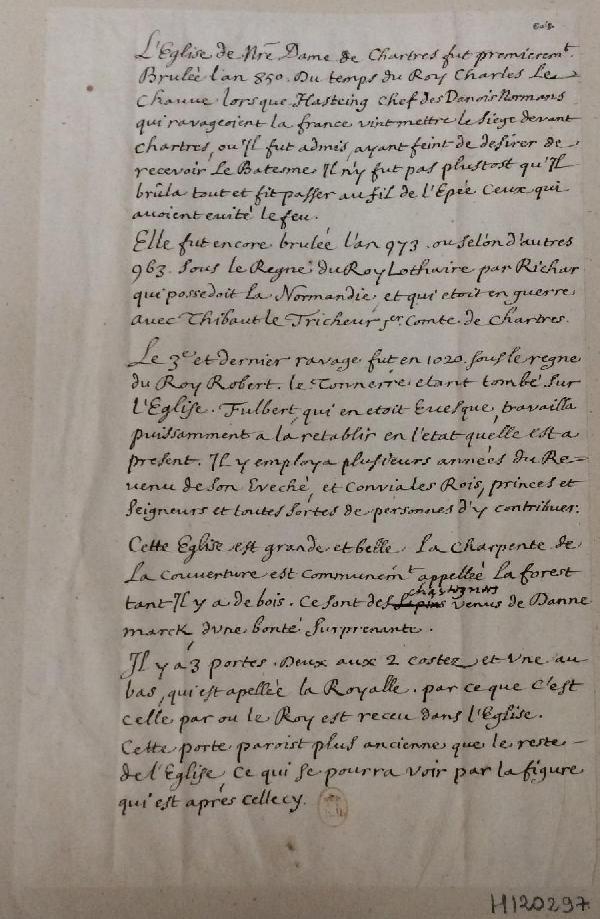 L'Eglise de Nr̃e Dame de Chartres fut premierem.t
Brulée l'an 850. Du temps du Roy Charles Le
Chauve lorsque Hasteing chef des Danois Normans
qui ravageoient la france vint mettre le siege devant
Chartres, ou Il fut admis, ayant feint de desirer de
recevoir Le Batesme, Il n'y fut pas plustost qu'Il
brûla tout et fit passer au fil de l'Epée Ceux qui
avoient evité le feu.
Elle fut encore brulée l'an 973. ou selon d'autres
963. Sous le Regne du Roy Lothaire par Richar
qui possedoit La Normandie, et qui etoit en guerre
avec Thibaut le Tricheur 1er. Comte de Chartres.
Le 3e. et dernier ravage fut en 1020. sous le regne
du Roy Robert. le Tonnerre etant tombé sur
l'Eglise. Fulbert, qui en etoit Evesque, travailla
puissamment a la retablir en l'etat qu'elle est a
present. Il y employa plusieurs années du Re=
venu de son Eveché, et Convia les Rois, princes et
Seigneurs et toutes sortes de personnes d'y contribuer.
Cette Eglise est grande et belle. La Charpente de
La couverture est communem.t appellée La forest
tant Il y a de bois. Ce sont des chastaigners venus de Danne
marck d'vne bonté surprenante.
Il y a 3 portes. Deux aux 2 costez, et vne au
bas, qui est apellée la Royalle. par ce que C'est
celle par ou le Roy est receu dans l'Eglise.
Cette porte paroist plus ancienne que le reste
de l'Eglise Ce qui se pourra voir par la figure
qui est aprés Cellecy.
H120297